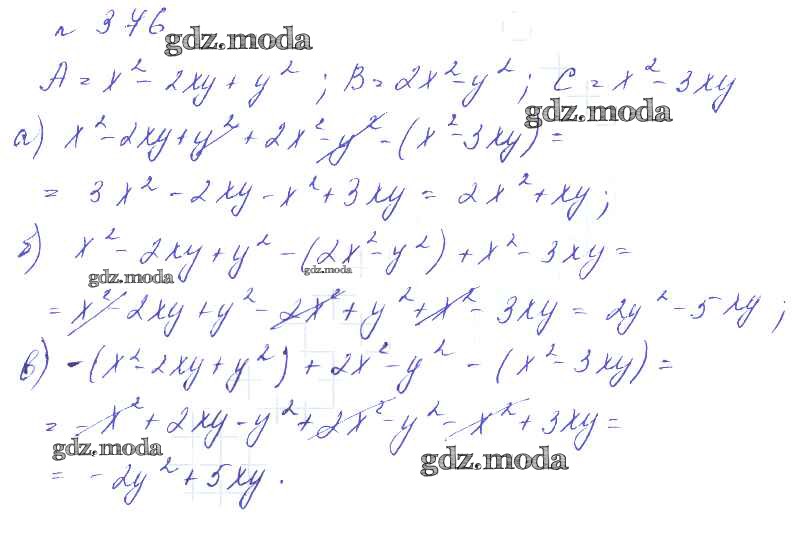 № 376
gdz.moda
A = x² - 2xy + y² ; B = 2x² - y² ; C = x² - 3xy
gdz.moda
а) x² - 2xy + y² + 2x² - y² - (x² - 3xy) =
= 3x² - 2xy - x² + 3xy = 2x² + xy ;
б) x² - 2xy + y² - (2x² - y²) + x² - 3xy =
gdz.moda
gdz.moda
= x² - 2xy + y² - 2x² + y² + x² - 3xy = 2y² - 5xy ;
в) -(x² - 2xy + y²) + 2x² - y² - (x² - 3xy) =
= - x² + 2xy - y² + 2x² - y² - x² + 3xy =
gdz.moda
gdz.moda
= - 2y² + 5xy .